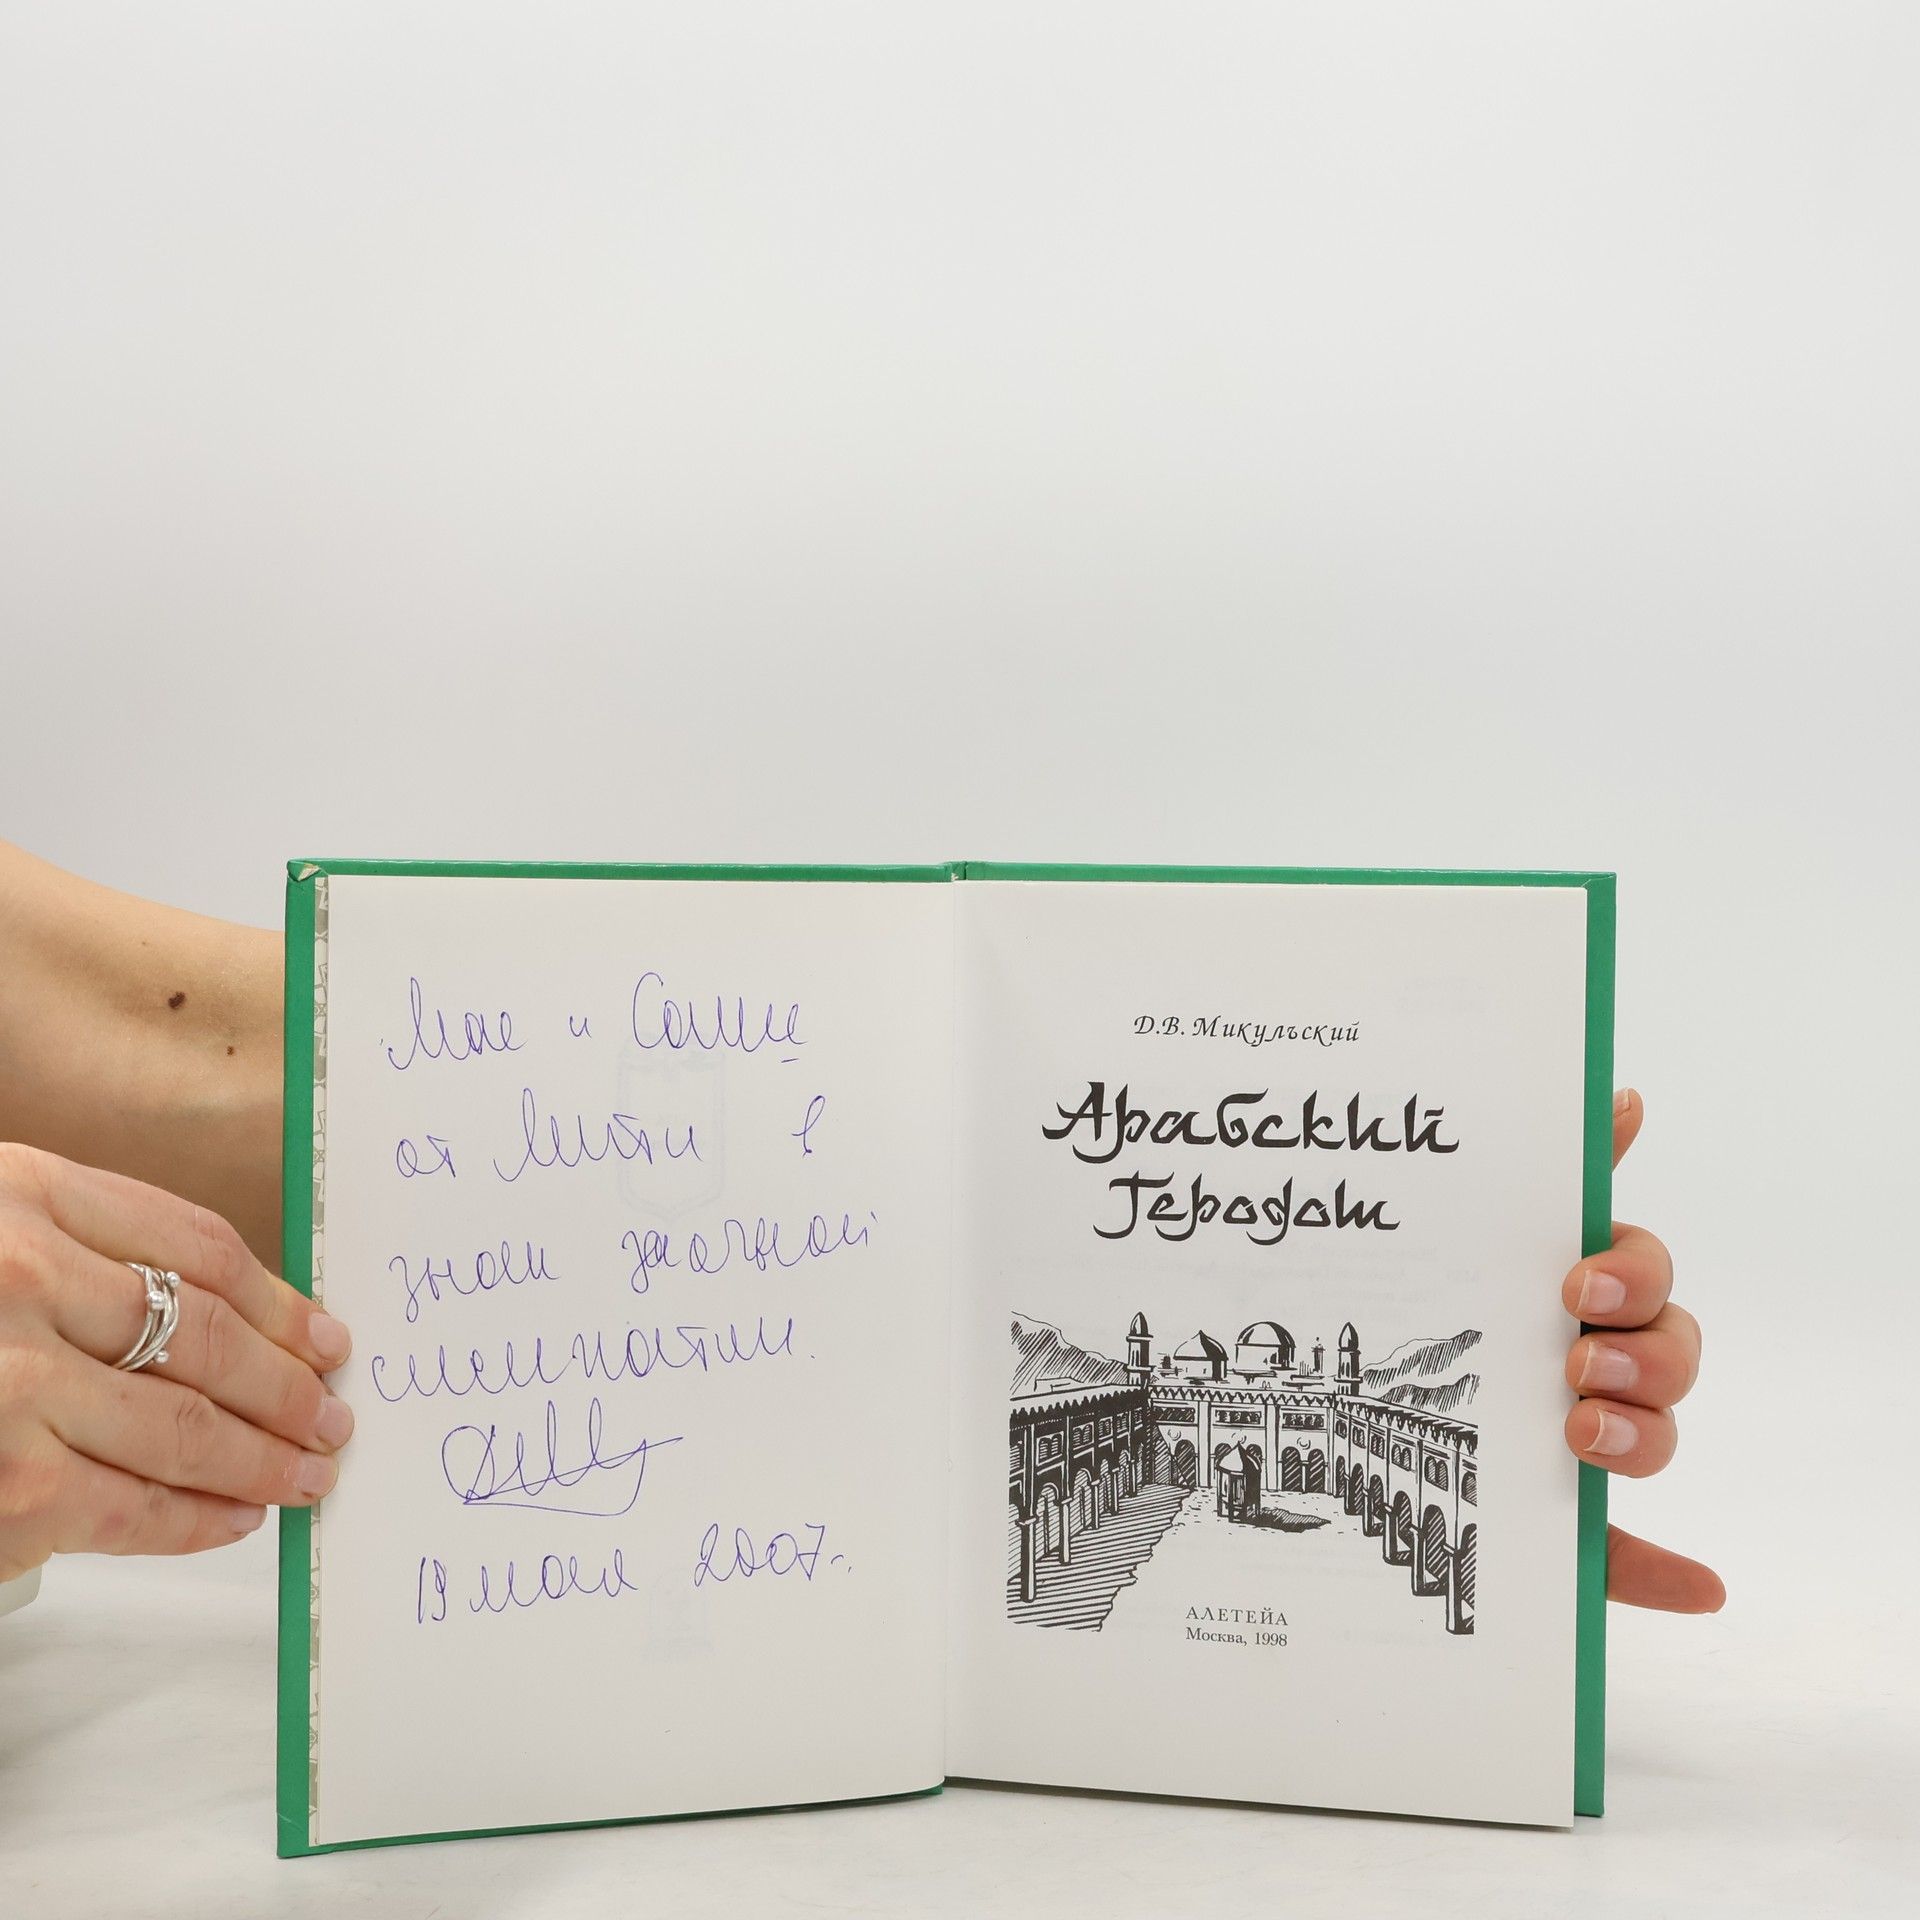 Мае и Саше
от Мити в
знак заочной
симпатии.
19 мая 2007г.
Д.В. Микульский
Арабский
Геродот
АЛЕТЕЙА
Москва, 1998